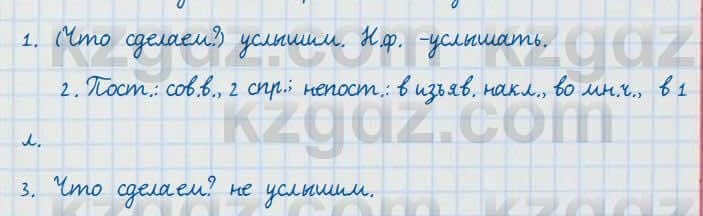 1. (Что сделаем?) услышим. Н.ф. -услышать.
2. Пост.: сов.в., 2 спр.; непост.: в изъяв. накл., во мн.ч., в 1
л.
3. Что сделаем? не услышим.
kzgdz.com